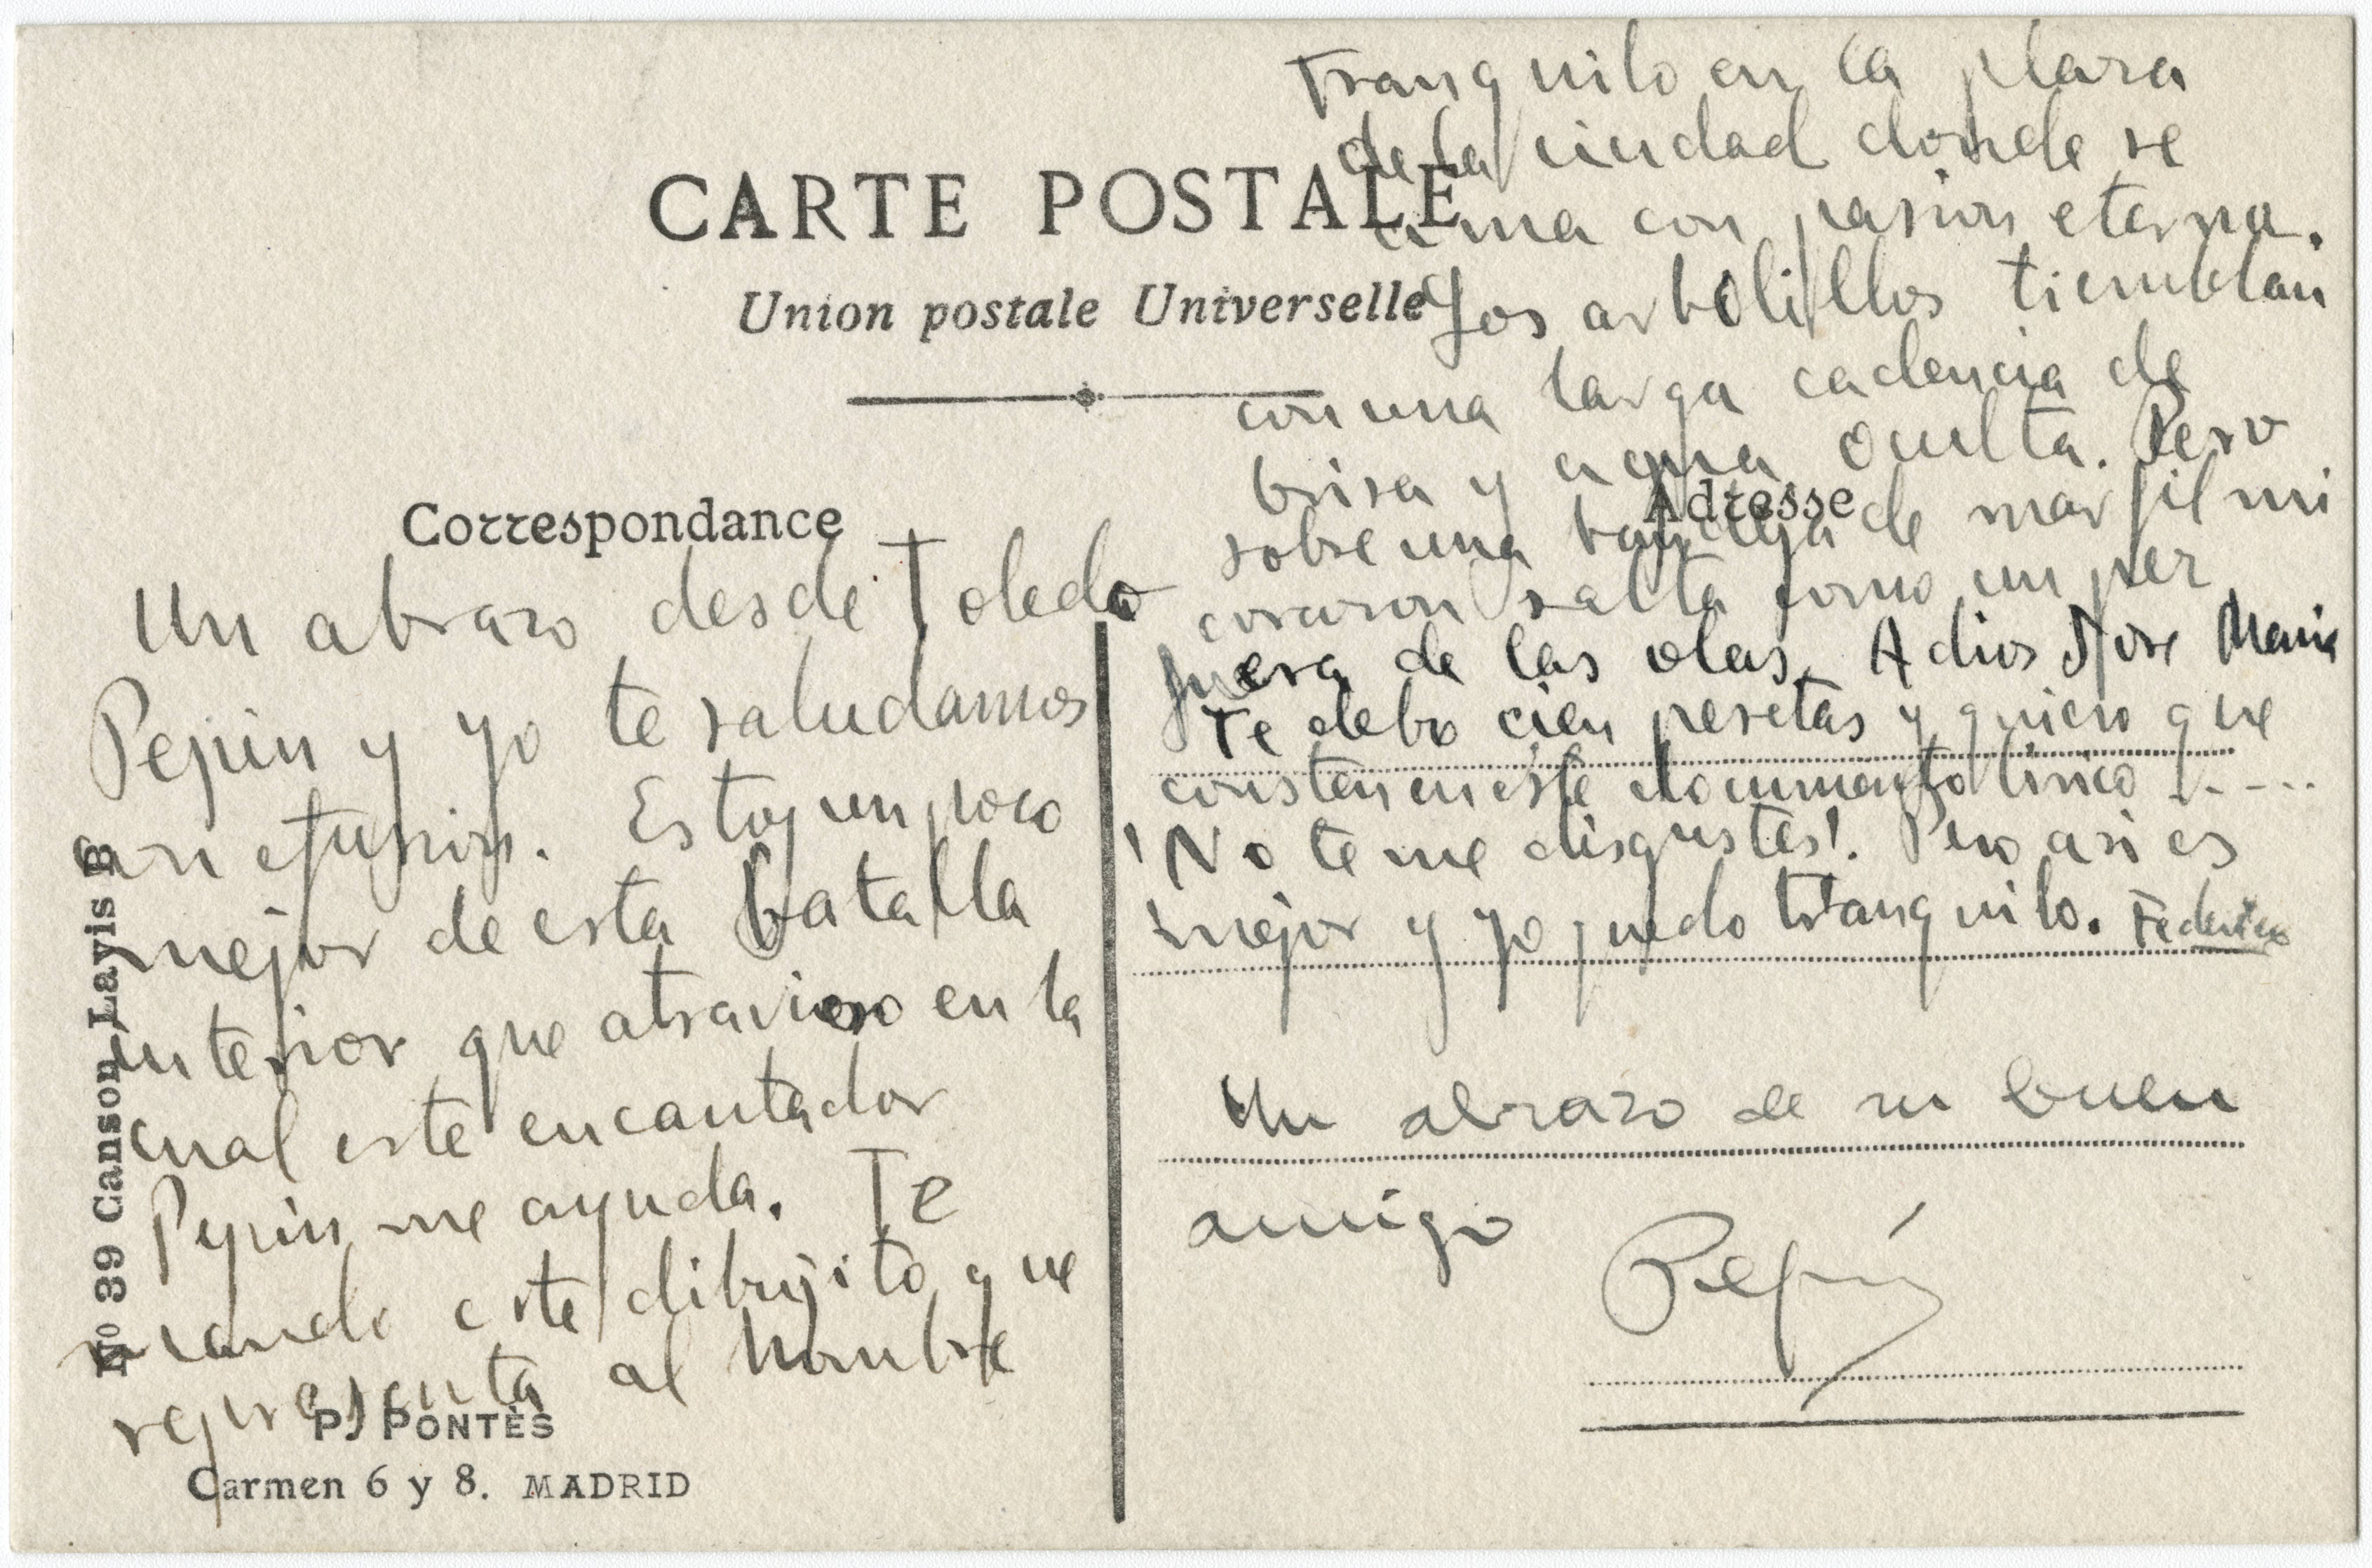 CARTE POSTALE
Union postale Universelle
Correspondance
Un abrazo desde Toledo
Pepin y yo te saludamos
con efusion. Estoy un poco
mejor de esta batalla
interior que atravieso en la
cual este encantador
Pepin me ayuda. Te
mando este dibujito que
representa al hombre
Nº 39 Canson Layis B
P. PONTÈS
Carmen 6 y 8. MADRID
Adresse
tranquilo en la plaza
de la ciudad donde se
ama con pasion eterna.
Los arbolillos tiemblan
con una larga cadencia de
brisa y agua oculta. Pero
sobre una bandeja de marfil mi
corazon salta como un pez
fuera de las olas. Adios Jose Maria
Te debo cien pesetas y quiero que
consten en este documento lirico
¡No te me disgustes!. Pero asi es
mejor y yo quedo tranquilo. Federico
Un abrazo de su buen
amigo
Pepín